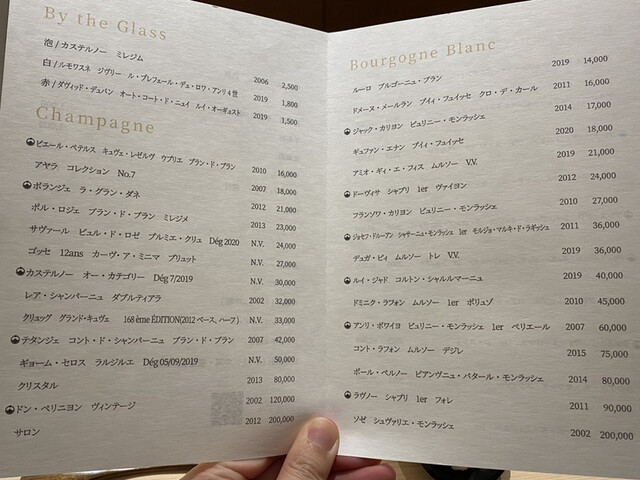 By the Glass
泡/カステルノー ミレジム 2006 2,500
白/ルモワスネ ジヴリー ル・プレフェール・デュ・ロワ・アンリ4世 2019 1,800
赤/ダヴィッド・デュバン オート・コート・ド・ニュイ ルイ・オーギュスト 2019 1,500
Champagne
ピエール・ペテルス キュヴェ・レゼルヴ ウブリエ ブラン・ド・ブラン 2010 16,000
アヤラ コレクション No.7 2007 18,000
ボランジェ ラ・グラン・ダネ 2012 21,000
ポル・ロジェ ブラン・ド・ブラン ミレジメ 2013 23,000
サヴァール ビュル・ド・ロゼ プルミエ・クリュ Dég 2020 N.V. 24,000
ゴッセ 12ans カーヴ・ア・ミニマ ブリュット N.V. 27,000
カステルノー オー・カテゴリー Dég 7/2019 N.V. 30,000
レア・シャンパーニュ ダブルティアラ 2002 32,000
クリュッグ グランド・キュヴェ 168 ème ÉDITION(2012 ベース, ハーフ) N.V. 33,000
テタンジェ コント・ド・シャンパーニュ ブラン・ド・ブラン 2007 42,000
ギョーム・セロス ラルジルエ Dég 05/09/2019 N.V. 50,000
クリスタル 2013 80,000
ドン・ペリニヨン ヴィンテージ 2002 120,000
サロン 2012 200,000
Bourgogne Blanc
ルーロ ブルゴーニュ・ブラン 2019 14,000
ドメーヌ・メールラン プイィ・フュイッセ クロ・デ・カール 2011 16,000
ジャック・カリヨン ピュリニー・モンラッシェ 2014 17,000
ギュファン・エナン プイィ・フュイッセ 2020 18,000
アミオ・ギィ・エ・フィス ムルソー V.V. 2019 21,000
ドーヴィサ シャブリ 1er ヴァイヨン 2012 24,000
フランソワ・カリヨン ピュリニー・モンラッシェ 2010 27,000
ジョセフ・ドルーアン シャサーニュ・モンラッシェ 1er モルジョ・マルキ・ド・ラギッシュ 2011 36,000
デュガ・ピィ ムルソー トレ V.V. 2019 36,000
ルイ・ジャド コルトン・シャルルマーニュ 2019 40,000
ドミニク・ラフォン ムルソー 1er ポリュゾ 2010 45,000
アンリ・ボワイヨ ピュリニー・モンラッシェ 1er ペリエール 2007 60,000
コント・ラフォン ムルソー デジレ 2015 75,000
ポール・ペルノー ビアンヴニュ・バタール・モンラッシェ 2014 80,000
ラヴノー シャブリ 1er フォレ 2011 90,000
ソゼ シュヴァリエ・モンラッシェ 2002 200,000